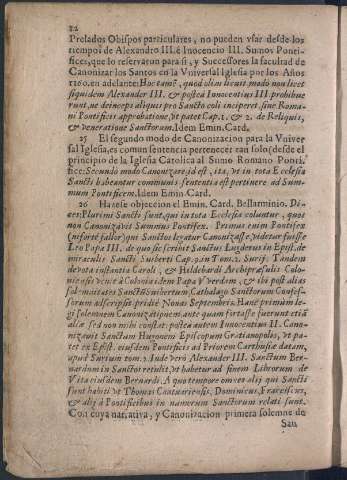 22
Prelados Obispos particulares, no pueden vsar desde los
tiempos de Alexandro III. è Inocencio III. Sumos Ponti-
fices, que lo reservaron para sì, y Successores la facultad de
Canonizar los Santos en la Vniversal Iglesia por los Años
1160. en adelante: Hoc tamen, quod olim licuit modo non licet
siquidem Alexander III. & postea Innocentius III. prohibue
runt, ne deinceps aliquis pro Sancto coli inciperet, sine Roma-
ni Pontificis approbatione, vt patet Cap. 1. & 2. de Reliquis,
& veneratione Sanctorum. Idem Emin. Card.
25 El segundo modo de Canonizacion para la Vniver
sal Iglesia, es comun sentencia pertenecer tan solo (desde el
principio de la Iglesia Catolica al Sumo Romano Ponti-
fice: Secundo modo Canonizare, id est, ita, vt in tota Ecclesia
Sancti habeantur communis sententia est pertinere ad Sum-
mum Pontificem. Idem Emin. Card.
26 Hazese objeccion el Emin. Card. Bellarminio. Di-
cen: Plurimi Sancti sunt, qui in tota Ecclesia coluntur, quos
non Canonizavit Summus Pontifex. Primus enim Pontifex
(ni forte fallor) qui Sanctos legatur Canonizasse, videtur fuisse
Leo Papa III. de quo sic scribit Sanctus Lugderus in Epist. de
miraculis Sancti Suiberti Cap. 9. in Tom. 2. Surij. Tandem
devota instantia Caroli, & Hildebardi Archipræsulis Colo-
niensis venit à Coloniam idem Papa Vverdem, & ibi post alias
solemnitates Sanctũ Suibertum Cathalogo Sanctorum Confes-
sorum adscripsit pridiè Nonas Septembris. Hanc primùm le-
gi solemnem Canonizationem, ante quam fortasse fuerunt etiã
aliæ sed non mihi constat: postea autem Innocentius II. Cano-
nizavit Sanctum Hugonem Episcopum Gratianopolis, vt pa-
tet ex Epist. eiusdem Pontificis ad Priorem Carthusiæ datam,
apud Surium tom. 2. Inde verò Alexander III. Sanctum Ber-
nardum in Sanctos retulit, vt habetur ad finem Librorum de
Vita eiusdem Bernardi. A quo tempore omnes alij qui Sancti
sunt habiti vt Thomas Cantuariensis, Dominicus, Franciscus,
& alij à Pontificibus in numerum Sanctorum relati sunt.
Con cuya narrativa, y Canonizacion primera solemne de
San